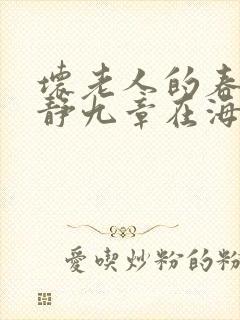 壞老人的春
靜九章在海
愛喫炒粉的粉